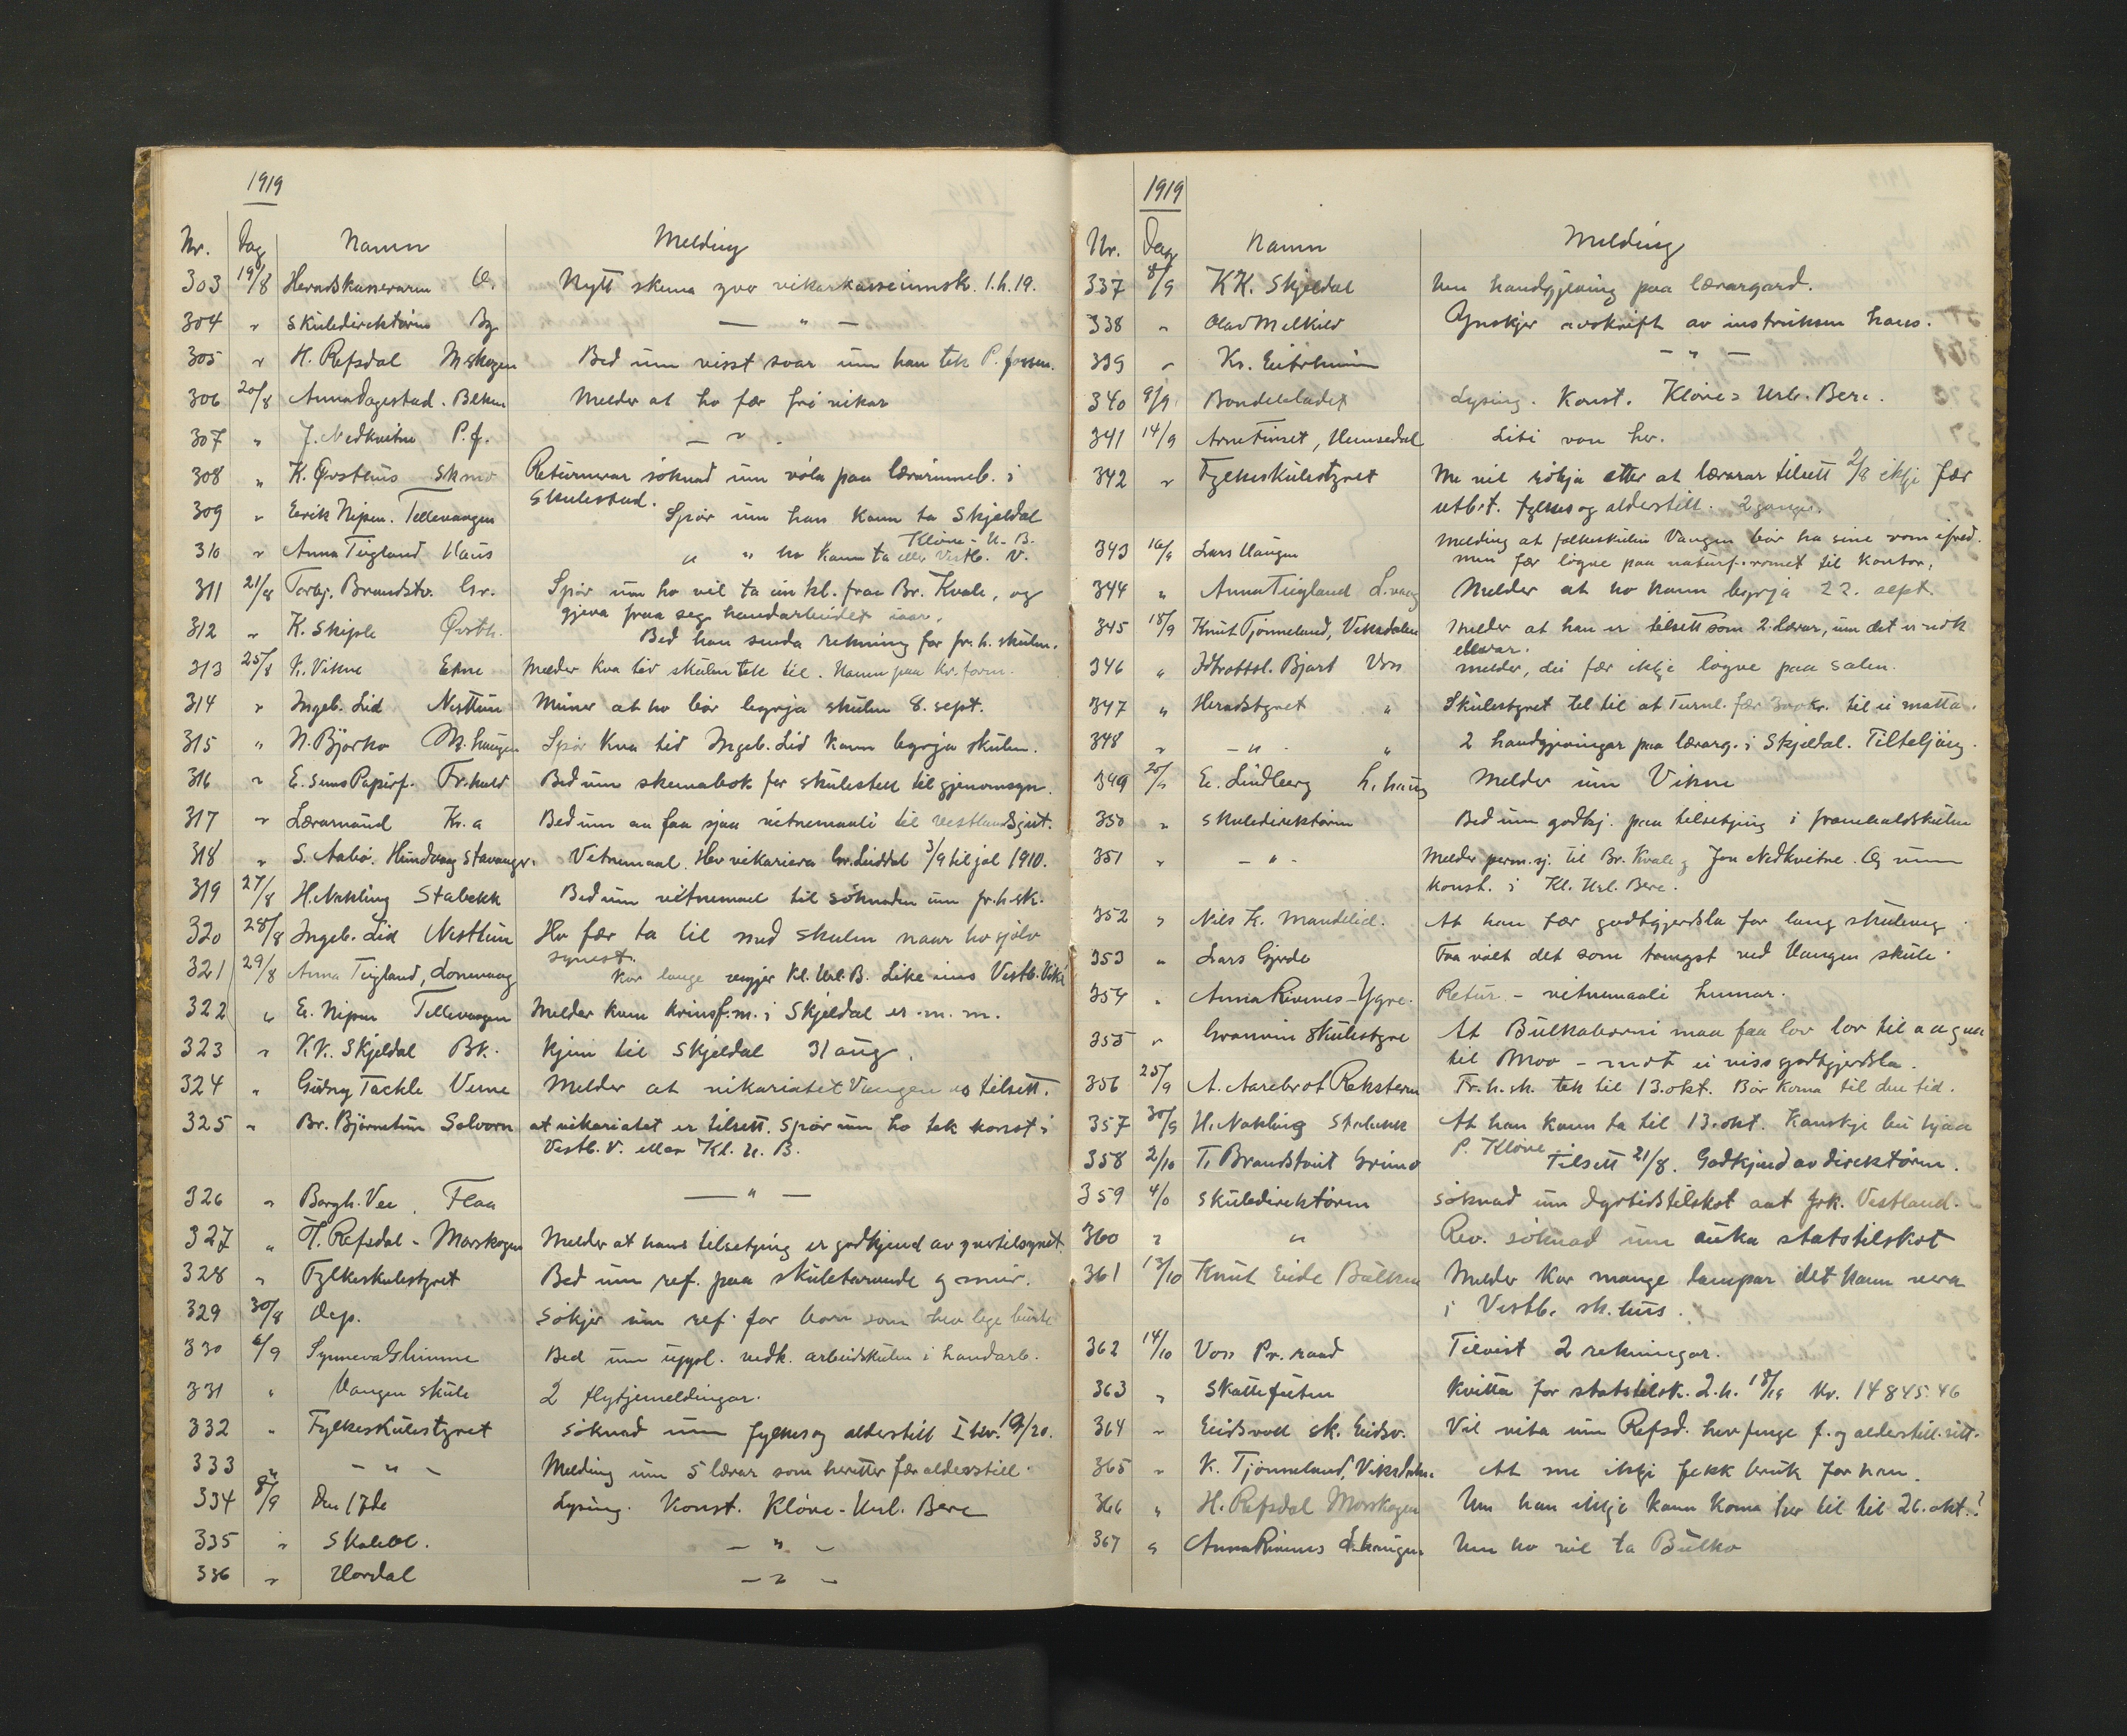 1919
Nr. Dag Namn Melding
303 19/8 Heradskasseraren V. Nytt skema yvo vikarkasseinnsk. 1.h.19.
304 " Skuledirektøren Bg. — " —
305 " H. Refsdal M.skogen Bed um visst svar um han tek P.
306 20/8 Anna Dagestad. Blken Melder at ho fær fri vikar
307 " J. Nedkvitne P.f. — " -
308 " K. Øvsthus Skmo Returnerar söknad um völa paa lærarinneb. i
Skulestad.
309 " Eirik Nipen. Tellevangen Spör um han kann ta Skjeldal
310 " Anna Tiugland Haus " " ho kann ta Klöve - U. B. eller Vestb. V.
311 21/8 Torbj. Brandstv. Gr. Spör um ho vil ta ein kl. fraa Br. Kvale, og
gjeva fraa seg handarbeidet iaar.
312 " K. Skiple Øvsth. Bed han senda rekning for fr. h. skulen.
313 25/8 K. Vikne Etne Melder kva tid skulen tek til. Namn paa kr. form.
314 " Ingeb. Lid Nesttun Minner at ho bör byrja skulen 8. sept.
315 " N. Björko M. haugen Spör kva tid Ingeb. Lid kann byrja skulen.
316 " E. Sems Papirf. Fr.hald Bed um skemabok for skulestell til gjenomsyn.
317 " Læramaud Kr.a Bed um aa faa sjaa vitnemaali til Vestlandsgut.
318 " S. Aabö. Hundvaag Stavanger. Vitnemaal. Hev vikariera Gr. Liddal 3/9 til jol 1910.
319 27/8 H. Nakling Stabekk Bed um vitnemaal til söknaden um fr.h.sk.
320 28/8 Ingeb. Lid Nesttun Ho fær ta til med skulen naar ho sjölv
synest.
321 29/8 Anna Tiugland, Lonevaag Kor lenge Kl. Url. B. Like eins Vestb. Viki
322 " E. Nipen Tellevangen Melder kven krinsf.m. i Skjeldal er. m. m.
323 " K.K. Skjeldal Bk. Kjem til Skjeldal 31 aug.
324 " Gudny Takle Verne Melder at vikariatet Vangen er tilsett.
325 " Br. Björnetun Solvorn at vikariatet er tilsett. Spör um ho tek konst. i
Vestb. V. eller Kl. U. B.
326 " Borgh. Vee, Flaa — " —
327 " H. Refsdal - Morskogen Melder at hans tilsetjing er godkjend av yvertilsynet.
328 " Fylkeskulestyret Bed um ref. paa skuletavande og mur.
329 30/8 Dep. Sökjer um ref. for born som hev lege burte
330 6/9 Synneva Glimme Bed um uppl. vedk. arbeidskulen i handarb.
331 " Vangen skule 2 flytjemeldingar.
332 " Fylkeskulestyret Söknad um fylkes og alderstill I hev. 19/20.
333 " — " — Melding um 5 lærar som heretter fær alderstill.
334 8/9 Den 17de Lysing. Konst. Klöve - Url. Bere
335 " Skulebl. — " —
336 " Hordal — " —
1919
Nr. Dag Namn Melding
337 8/9 K.K. Skjeldal Um handgjeving paa lærargard.
338 " Olav Melkild Ynskjer avskrift av instruksen hans.
339 " Kr. Eitrheim — " —
340 9/9 Bondebladet Lysing. Konst. Klöve = Url. Bere.
341 14/9 Arne Finset, Hemsedal Liti von her.
342 " Fylkeskulestyret Me vil sökja etter at lærarar tilsett 2/8 ikkje fær
utbet. fylkes og alderstill. 2 gonger.
343 16/9 Lars Haugen Melding at folkeskulen Vangen bör ha sine rom ifred.
men fær logne paa naturf.romet til kontor.
344 " Anna Tiugland L.vaag Melder at ho kann byrja 22. sept.
345 18/9 Knut Tjönneland, Viksdalen Melder at han er tilsett som 2. lærar, um det er nok
elevar.
346 " Idrottsl. Bjart Voss melder, dei fær ikkje logne paa salen.
347 " Heradstyret " Skulestyret tel til at Turnl. fær 300 kr. til ei matta.
348 " - " - " 2 handgjevingar paa lærarg. i Skjeldal. Tiltelging.
349 20/9 E. Lindberg L. haug Melder um Vikne
350 " Skuledirektören Bed um godkj. paa tilsetjing i framhaldskulen
351 " - " - Melder perm.sj. til Br. Kvale og Jon Nedkvitne. Og um
konst. i Kl. Url. Bere.
352 " Nils K. Mandelid. At han fær godtgjerdsla for lang skuleveg.
353 " Lars Gjerde Faa valt det som trengst ved Vangen skule.
354 " Anna Rivenes - Ygre. Retur - vitnemaali hennar.
355 " Granvin Skulestyre At Bulkaborni maa faa lov til aa gaa
til Moo - mot ei viss godtgjerdsla.
356 25/9 A. Aarebrot Reksteren Fr.h.sk. tek til 13. okt. Bör koma til den tid.
357 30/9 H. Nakling Stabekk At han kann ta til 13. okt. Kanskje bu hjaa
P. Klöve
358 2/10 T. Brandstveit Grimo Tilsett 21/8. Godkjend av direktören.
359 4/10 Skuledirektören Söknad um dyrtidstilskot aat frk. Vestland.
360 " " Rev. söknad um auka statstilskot
361 13/10 Knut Eide Bulken Melder kor mange lampar det kann vera
i Vestb. sk.hus.
362 14/10 Voss Pr. raad Tilvist 2 rekningar.
363 " Skattefuten Kvitta for statstilsk. 2. h. 18/19 kr. 14845.46
364 " Eidsvoll sk. Eidsv. Vil vita um Refsd. hev fenge f. og alderstill. sitt.
365 " K. Tjönneland, Viksdalen At me ikkje fekk bruk for han.
366 " H. Refsdal Morskogen Um han ikkje kann koma her til til 26. okt.?
367 " Anna Rivenes Um ho vil ta Bulko